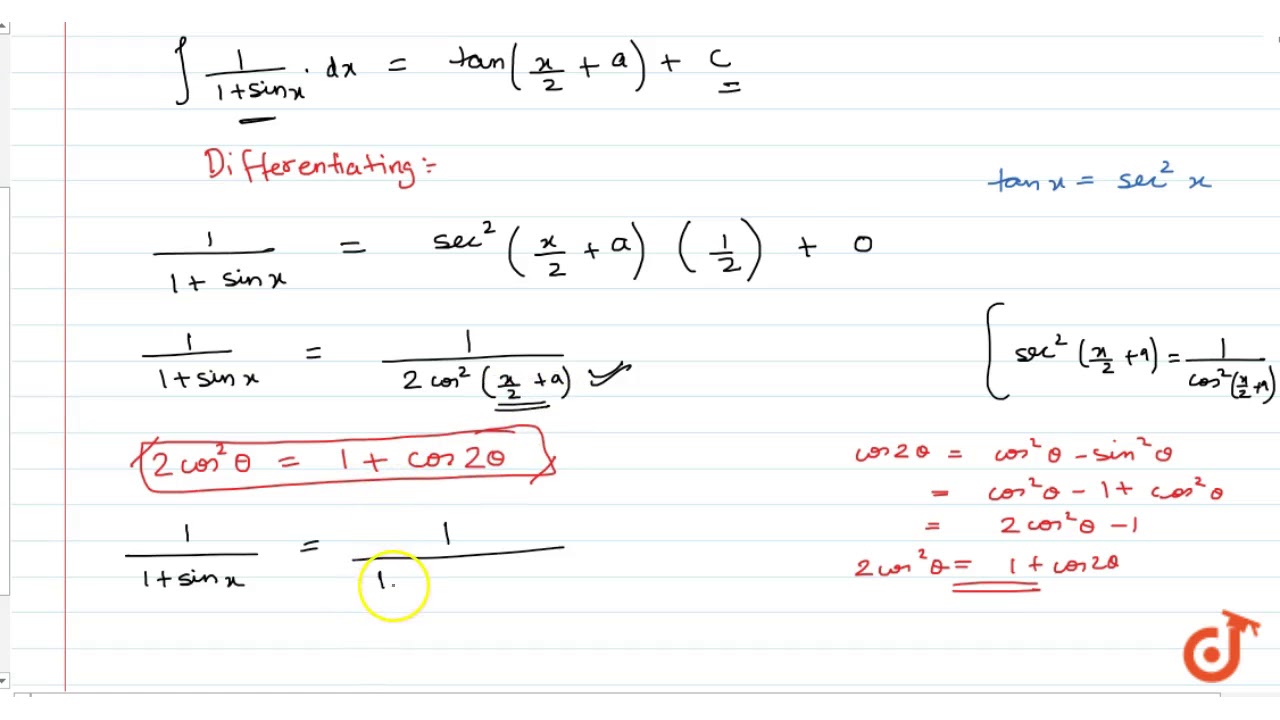 ∫ 1/(1+sinx) · dx = tan(x/2 + a) + C
Differentiating :-
tanx = sec² x
1/(1 + sinx) = sec² (x/2 + a) (1/2) + 0
1/(1+sinx) = 1/(2 cos² (x/2 + a))
sec² (x/2 + a) = 1/(cos² (x/2 + a))
2 cos² θ = 1 + cos 2θ
cos 2θ = cos² θ - sin² θ
= cos² θ - 1 + cos² θ
= 2 cos² θ - 1
2 cos² θ = 1 + cos 2θ
1/(1 + sinx) = 1/(1